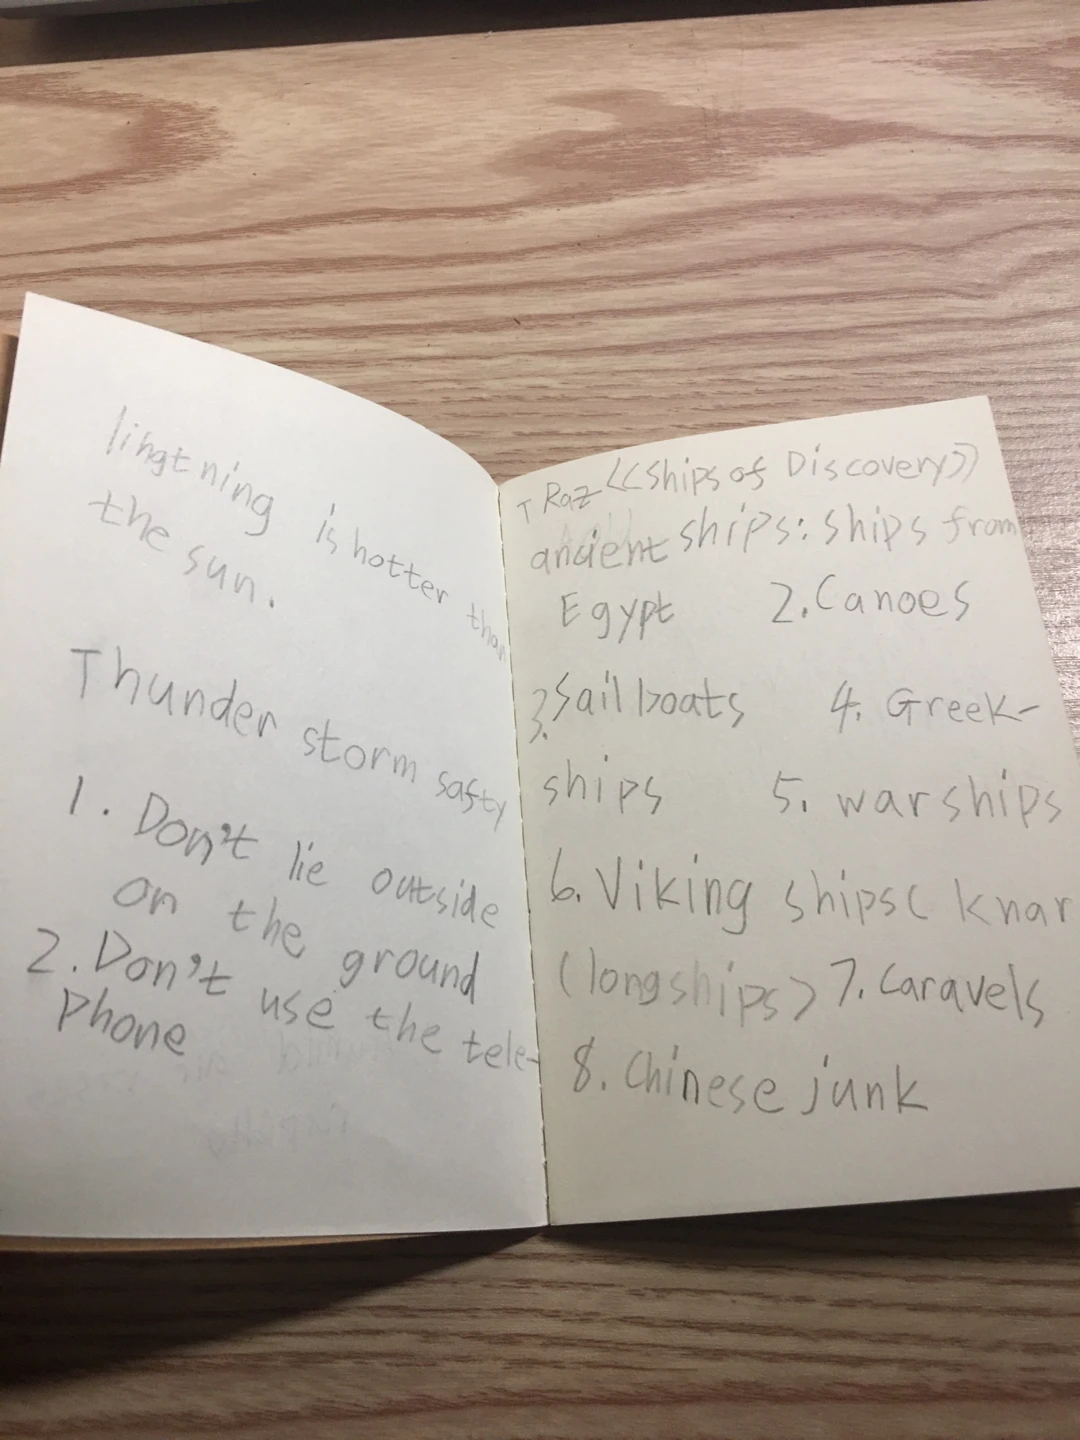 lihgtning is hotter than
the sun.
Thunder storm safty
1. Don't lie outside
on the ground
2. Don't use the tele-
phone
T Raz 《Ships of Discovery》
ancient ships: ships from
Egypt 2. Canoes
3. Sailboats 4. Greek-
ships 5. warships
6. Viking ships( knar
(longships) 7. Caravels
8. Chinese junk